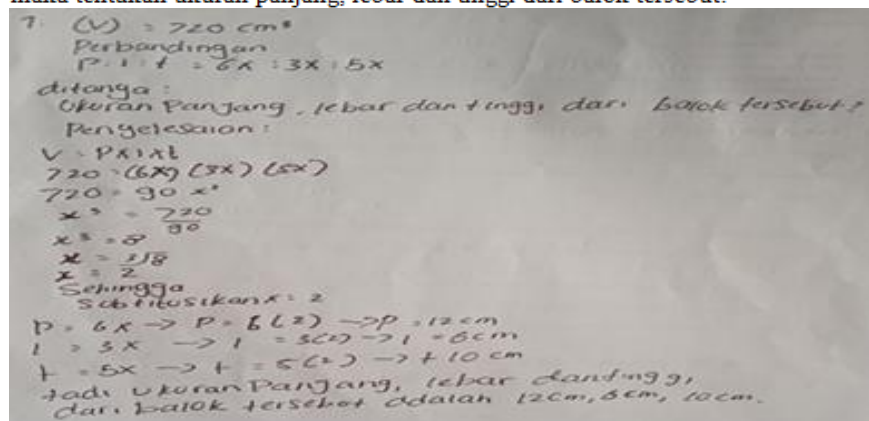 7. (V) = 720 cm³
Perbandingan
P : l : t = 6x : 3x : 5x
ditanga :
Ukuran Panjang, lebar dan tinggi dari balok tersebut?
Penyelesaian :
V = P x l x t
720 = (6x) (3x) (5x)
720 = 90 x³
x³ = 720/90
x³ = 8
x = ³√8
x = 2
Sehingga
Subtitusikan x = 2
P = 6x → P = 6(2) → P = 12 cm
l = 3x → l = 3(2) → l = 6cm
t = 5x → t = 5(2) → t 10 cm
Jadi ukuran Panjang, lebar dan tinggi
dari balok tersebut adalah 12cm, 6cm, 10cm.